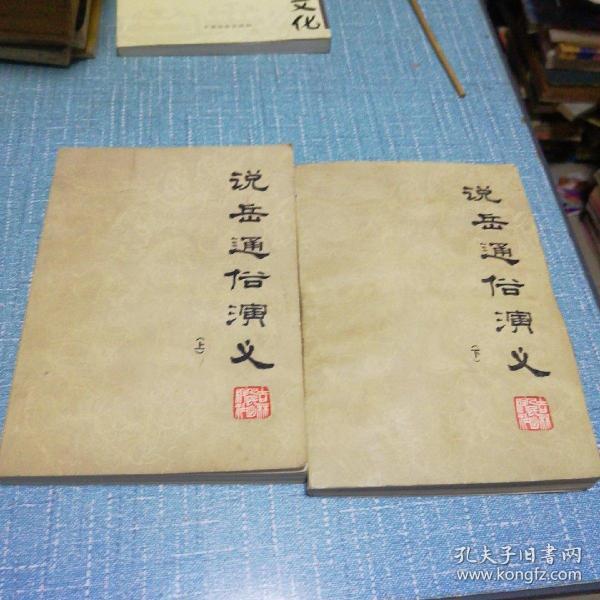 文化
说岳通俗演义
（上）
吉林
说岳通俗演义
（下）
吉林
孔夫子旧书网
www.kongfz.com